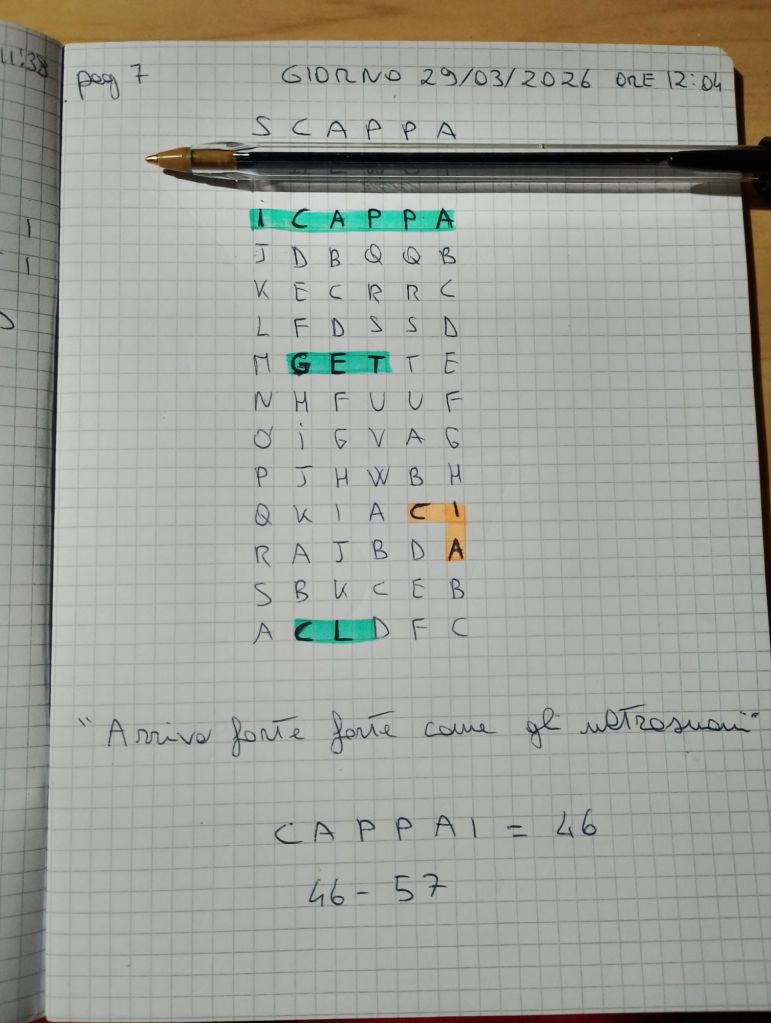 11:38
pag 7 GIORNO 29/03/2026 ORE 12:04
S C A P P A
i C A P P A
J D B Q Q B
K E C R R C
L F D S S D
M G E T T E
N H F U U F
O i G V A G
P J H W B H
Q K I A C I
R A J B D A
S B K C E B
A C L D F C
"Arriva forte forte come gli ultrasuoni"
C A P P A I = 46
46 - 57